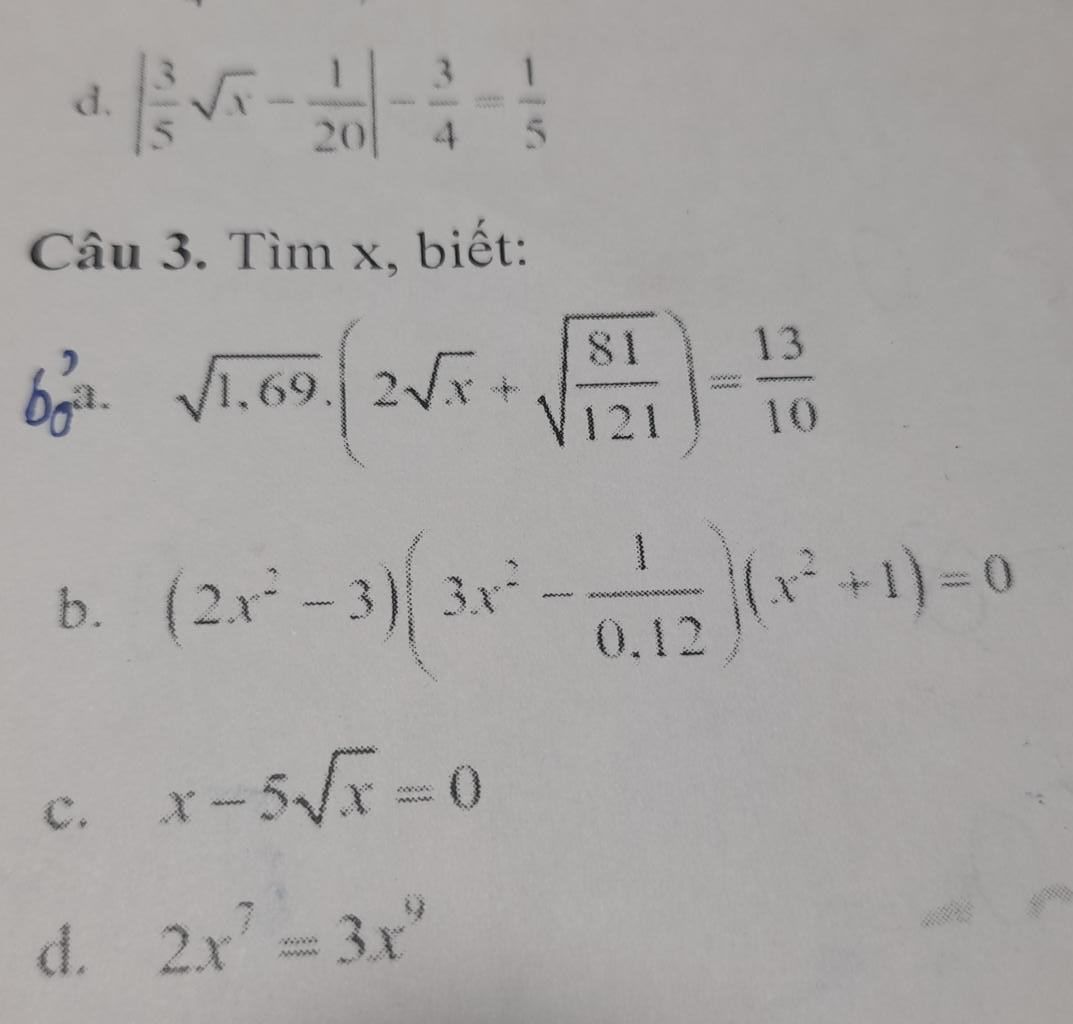 d. |3/5 √x − 1/20| − 3/4 = 1/5
Câu 3. Tìm x, biết:
a. √1,69.(2√x + √(81/121)) = 13/10
b. (2x² − 3)(3x² − 1/0,12)(x² + 1) = 0
c. x − 5√x = 0
d. 2x⁷ = 3x⁹